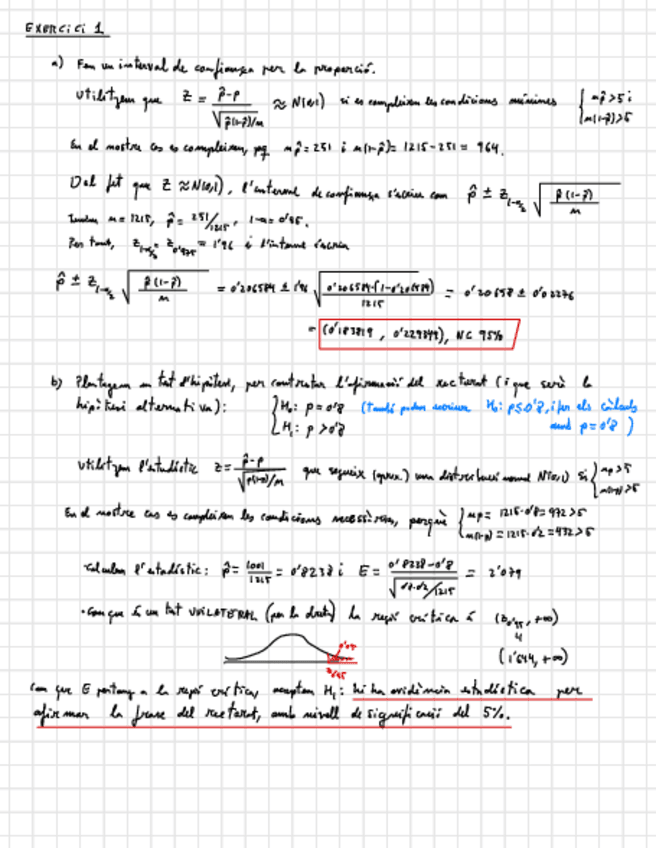 Exercici 1
a) Fem un interval de confiança per la proporció.
Utilitzem que Z = (p̂-p)/√(p̂(1-p̂)/n) ≈ N(0,1) si es compleixen les condicions mínimes { np̂>5 i n(1-p̂)>5
En el nostre cas es compleixen, pq np̂=251 i n(1-p̂)= 1215-251 = 964.
Del fet que Z≈N(0,1), l'interval de confiança s'escriu com p̂ ± z_{1-α/2} √(p̂(1-p̂)/n)
n=1215, p̂= 251/1215, 1-α=0'95.
Per tant, z_{1-α/2} = z_{0'975} = 1'96 i l'interval s'escriu
p̂ ± z_{1-α/2} √(p̂(1-p̂)/n) = 0'206584 ± 1'96 √(0'206584·(1-0'206584)/1215) = 0'20658 ± 0'02276
= (0'183819, 0'229349), NC 95%
b) Plantegem un test d'hipòtesi, per contrastar l'afirmació del rectorat (i que serà la
hipòtesi alternativa): { H₀: p=0'8 (també podem escriure H₀: p≤0'8, i fer els càlculs
H₁: p>0'8 amb p=0'8)
Utilitzem l'estadístic Z = (p̂-p)/√(p(1-p)/n) que segueix (aprox.) una distribució normal N(0,1) si { np>5 n(1-p)>5
En el nostre cas es compleixen les condicions necessàries, perquè { np= 1215·0'8=972>5 n(1-p)=1215·0'2=432>5
Calculem l'estadístic: p̂= 1001/1215 = 0'8238 i E= (0'8238-0'8)/√(0'8·0'2/1215) = 2'079
·Com que és un test UNILATERAL (per la dreta) la regió crítica és (z_{0'95}, +∞)
(1'644, +∞)
0'05
Com que E pertany a la regió crítica, acceptem H₁: hi ha evidència estadística per
afirmar la frase del rectorat, amb nivell de significació del 5%.